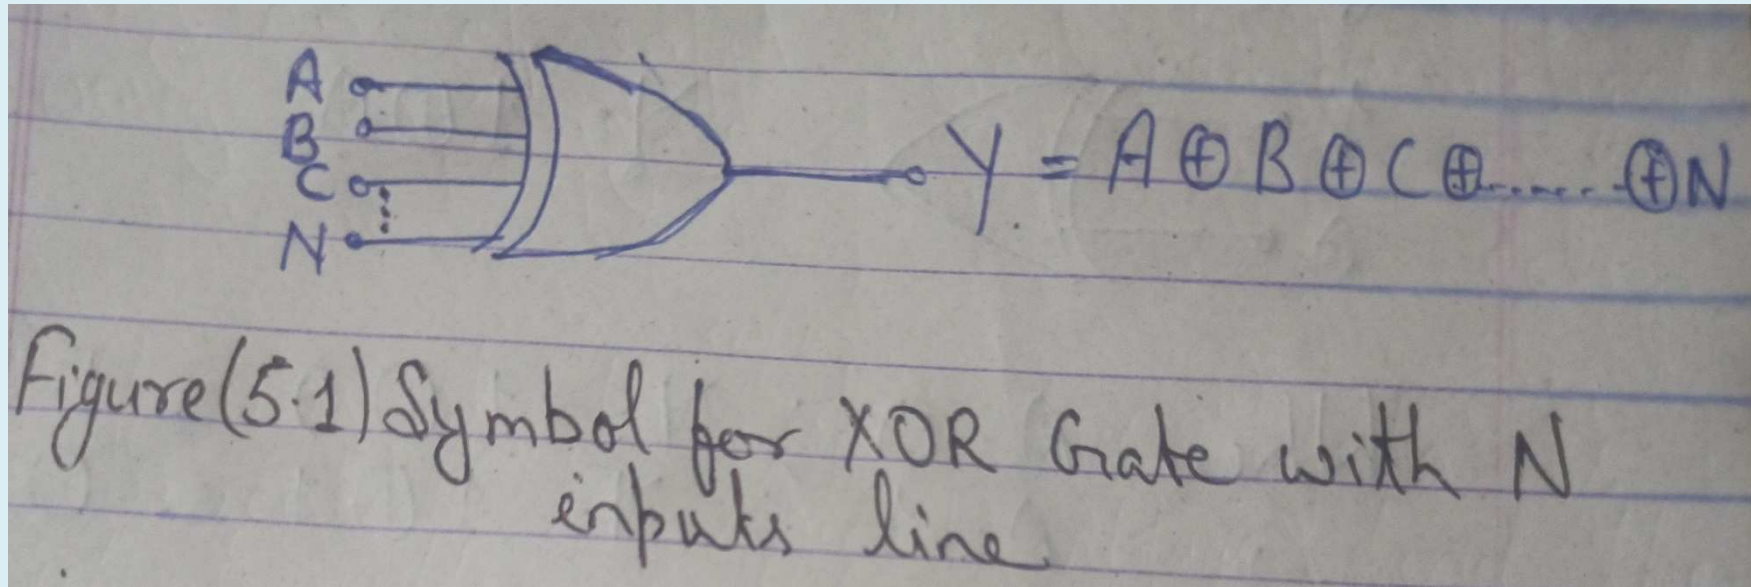 A
B
C
N
Y = A ⊕ B ⊕ C ⊕...... ⊕ N
Figure (5.1) Symbol for XOR Gate with N
inputs line